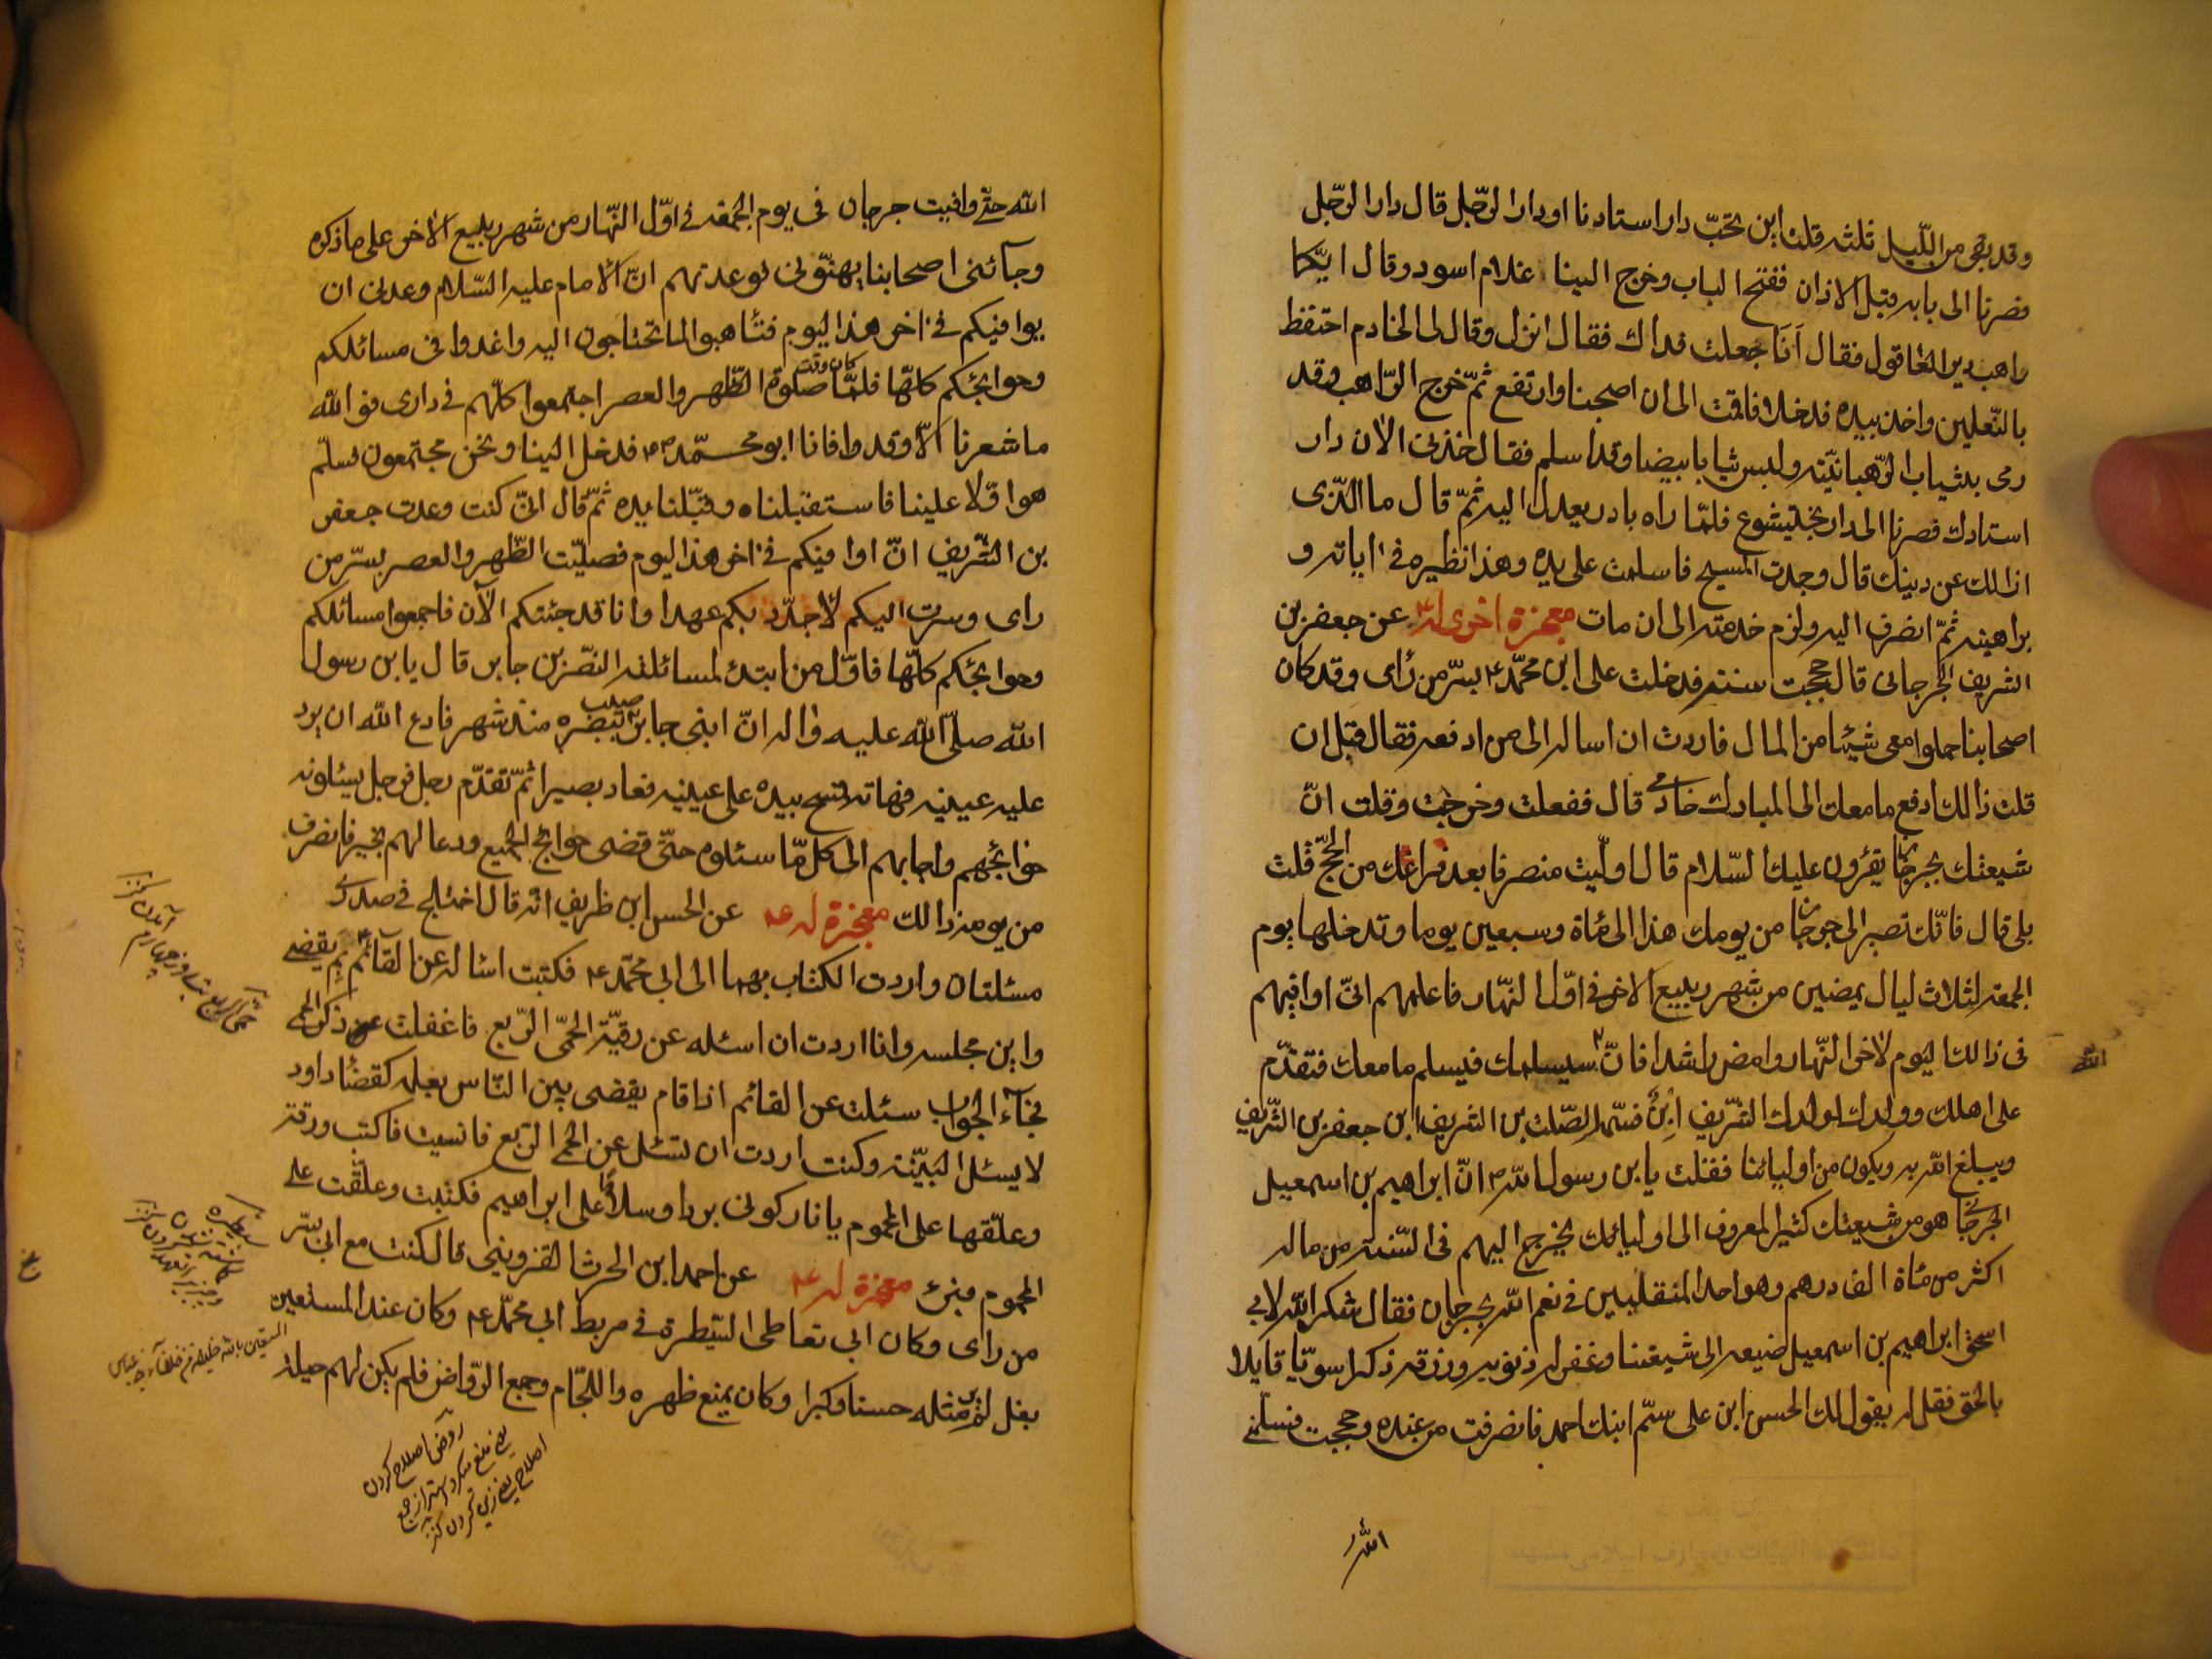 وقد بقى من اللّيل ثلثه قلت اين تحبّ دار استادنا او دار الرّجل قال دار الرّجل
فصرنا الى بابه قبل الاذان ففتح الباب وخرج الينا غلام اسود وقال ايّكما
راهب دير العاقول فقال اَنَا جعلت فداك فقال انزل وقال لى الخادم احتفظ
بالنّعلين واخذ بيده فدخلا فاقمت الى ان اصحبنا وارتفع ثمّ خرج الرّاهب وقد
رمى بثياب الرّهبانيّة ولبس ثيابا بيضا وقد اسلم فقال خذنى الان دار
استادك فصرنا الى دار بختيشوع فلمّا راه بادر يعدل اليه ثمّ قال ما الذّى
ازالك عن دينك قال وجدت المسيح فاسلمت على يده وهذا نظيره فى اياته و
براهينه ثمّ انصرف اليه ولزم خدمته الى ان مات معجزة اخرى له عن جعفر بن
الشريف الجرجانى قال حججت سنة فدخلت على ابى محمّد بسرّ من رأى وقد كان
اصحابنا حملوا معى شيئا من المال فاردت ان اساله الى من ادفعه فقال قبل ان
قلت ذالك ادفع مامعك الى المبارك خادمى قال ففعلت وخرجت وقلت انّ
شيعتك بجرجان يقرؤن عليك السّلام قال اولَيْتَ منصرفا بعد فراغك من الحجّ قلت
بلى قال فانّك تصير الى جرجان من يومك هذا الى مأة وسبعين يوما وتدخلها يوم
الجمعة لثلاث ليال يمضين من شهر ربيع الاخر فى اوّل النّهار فاعلمهم انّى اوافيهم
فى ذالك اليوم لاخر النّهار وامض راشدا فانّ سيسلمك فيسلم مامعك فتقدّم
الله
على اهلك وولدك لولدك الشّريف اِبْنٌ فسمّه الصّلت بن الشريف ابن جعفر بن الشّريف
ويبلغ الله به ويكون من اوليائنا فقلت يابن رسول الله انّ ابراهيم بن اسمعيل
الجرجانى هو من شيعتك كثير المعروف الى اوليائك يخرج اليهم فى السّنة من ماله
اكثر من مأة الف درهم وهو احد المنقلبين فى نعم الله بجرجان فقال شكر الله لابى
اسحق ابراهيم بن اسمعيل ضيعه الى شيعتنا وغفر له ذنوبه ورزقه ذكرا سويّا قايلا
بالحقّ فقل له يقول لك الحسن ابن على سمّ ابنك احمد فانصرفت من عنده وحججت فسلّمنى
الله
الله حتّى وافيت جرجان فى يوم الجمعة فى اوّل النّهار من شهر ربيع الاخر على ما ذكره
وجآئنى اصحابنا يهنّونى فوعدتهم انّ الامام عليه السّلام وعدنى ان
يوافيكم فى اخر هذا اليوم فتأهبوا لما تحتاجون اليه واغدوا فى مسائلكم
وحوايجكم كلّها فلمّا كان وقت صلوة الظّهر والعصر اجتمعوا كلّهم فى دارى فوالله
ما شعرنا الّا وقد وافانا ابو محمّد فدخل الينا ونحن مجتمعون فسلّم
هو اوّلا علينا فاستقبلناه وقبّلنا يده ثمّ قال انّى كنت وعدت جعفر
بن الشّريف انّ اوافيكم فى اخر هذا اليوم فصليّت الظّهر والعصر بسرّ من
راى وسرت اليكم لاُجدّد بكم عهدا وانا قد جئتكم الآن فاجمعوا مسائلكم
وحوايجكم كلّها فاوّل من ابتدئ لمسائلته النضر بن جابر قال يابن رسول
الله صلّى الله عليه واله انّ ابنى جابر اصيب ببصره منذ شهر فادع الله ان يرد
عليه عينيه فهاته فمسح بيده على عينيه فعاد بصيرا ثمّ تقدّم رجل فرجل يسئلونه
حوايجهم واجابهم الى كل ما سئلوه حتّى قضى حوائج الجميع ودعا لهم بخير فانصرف
من يومه ذالك معجزة له عن الحسن ابن ظريف انّه قال اختلج فى صدرى
مسئلتان واردت الكتاب بهما الى ابى محمّد فكتبت اسئاله عن القآئم بم يقضى
واين مجلسه وانا اردت ان اسئله عن رقيّة الحمّى الرّبع فاغفلت عن ذكر الحمى
فجآء الجواب سئلت عن القائم اذا قام يقضى بين النّاس بعلمه كقضاء داود
لا يسئل البيّنة وكنت اردت ان تسئل عن الحمى الرّبع فانسيت فاكتب ورقة
وعلّقها على المحموم يا نار كونى بردا وسلاما على ابراهيم فكتبت وعلّقت على
المحموم فبرئ معجزة له عن احمد ابن الحرث القزوينى قال كنت مع ابى بسرّ
من راى وكان ابى تعاطى البيطرة فى مربط ابى محمّد وكان عند المستعين
بغل لم ير مثله حسنا وكبرا وكان يمنع ظهره واللجّام وجمع الرّواض فلم يكن لهم حيلة